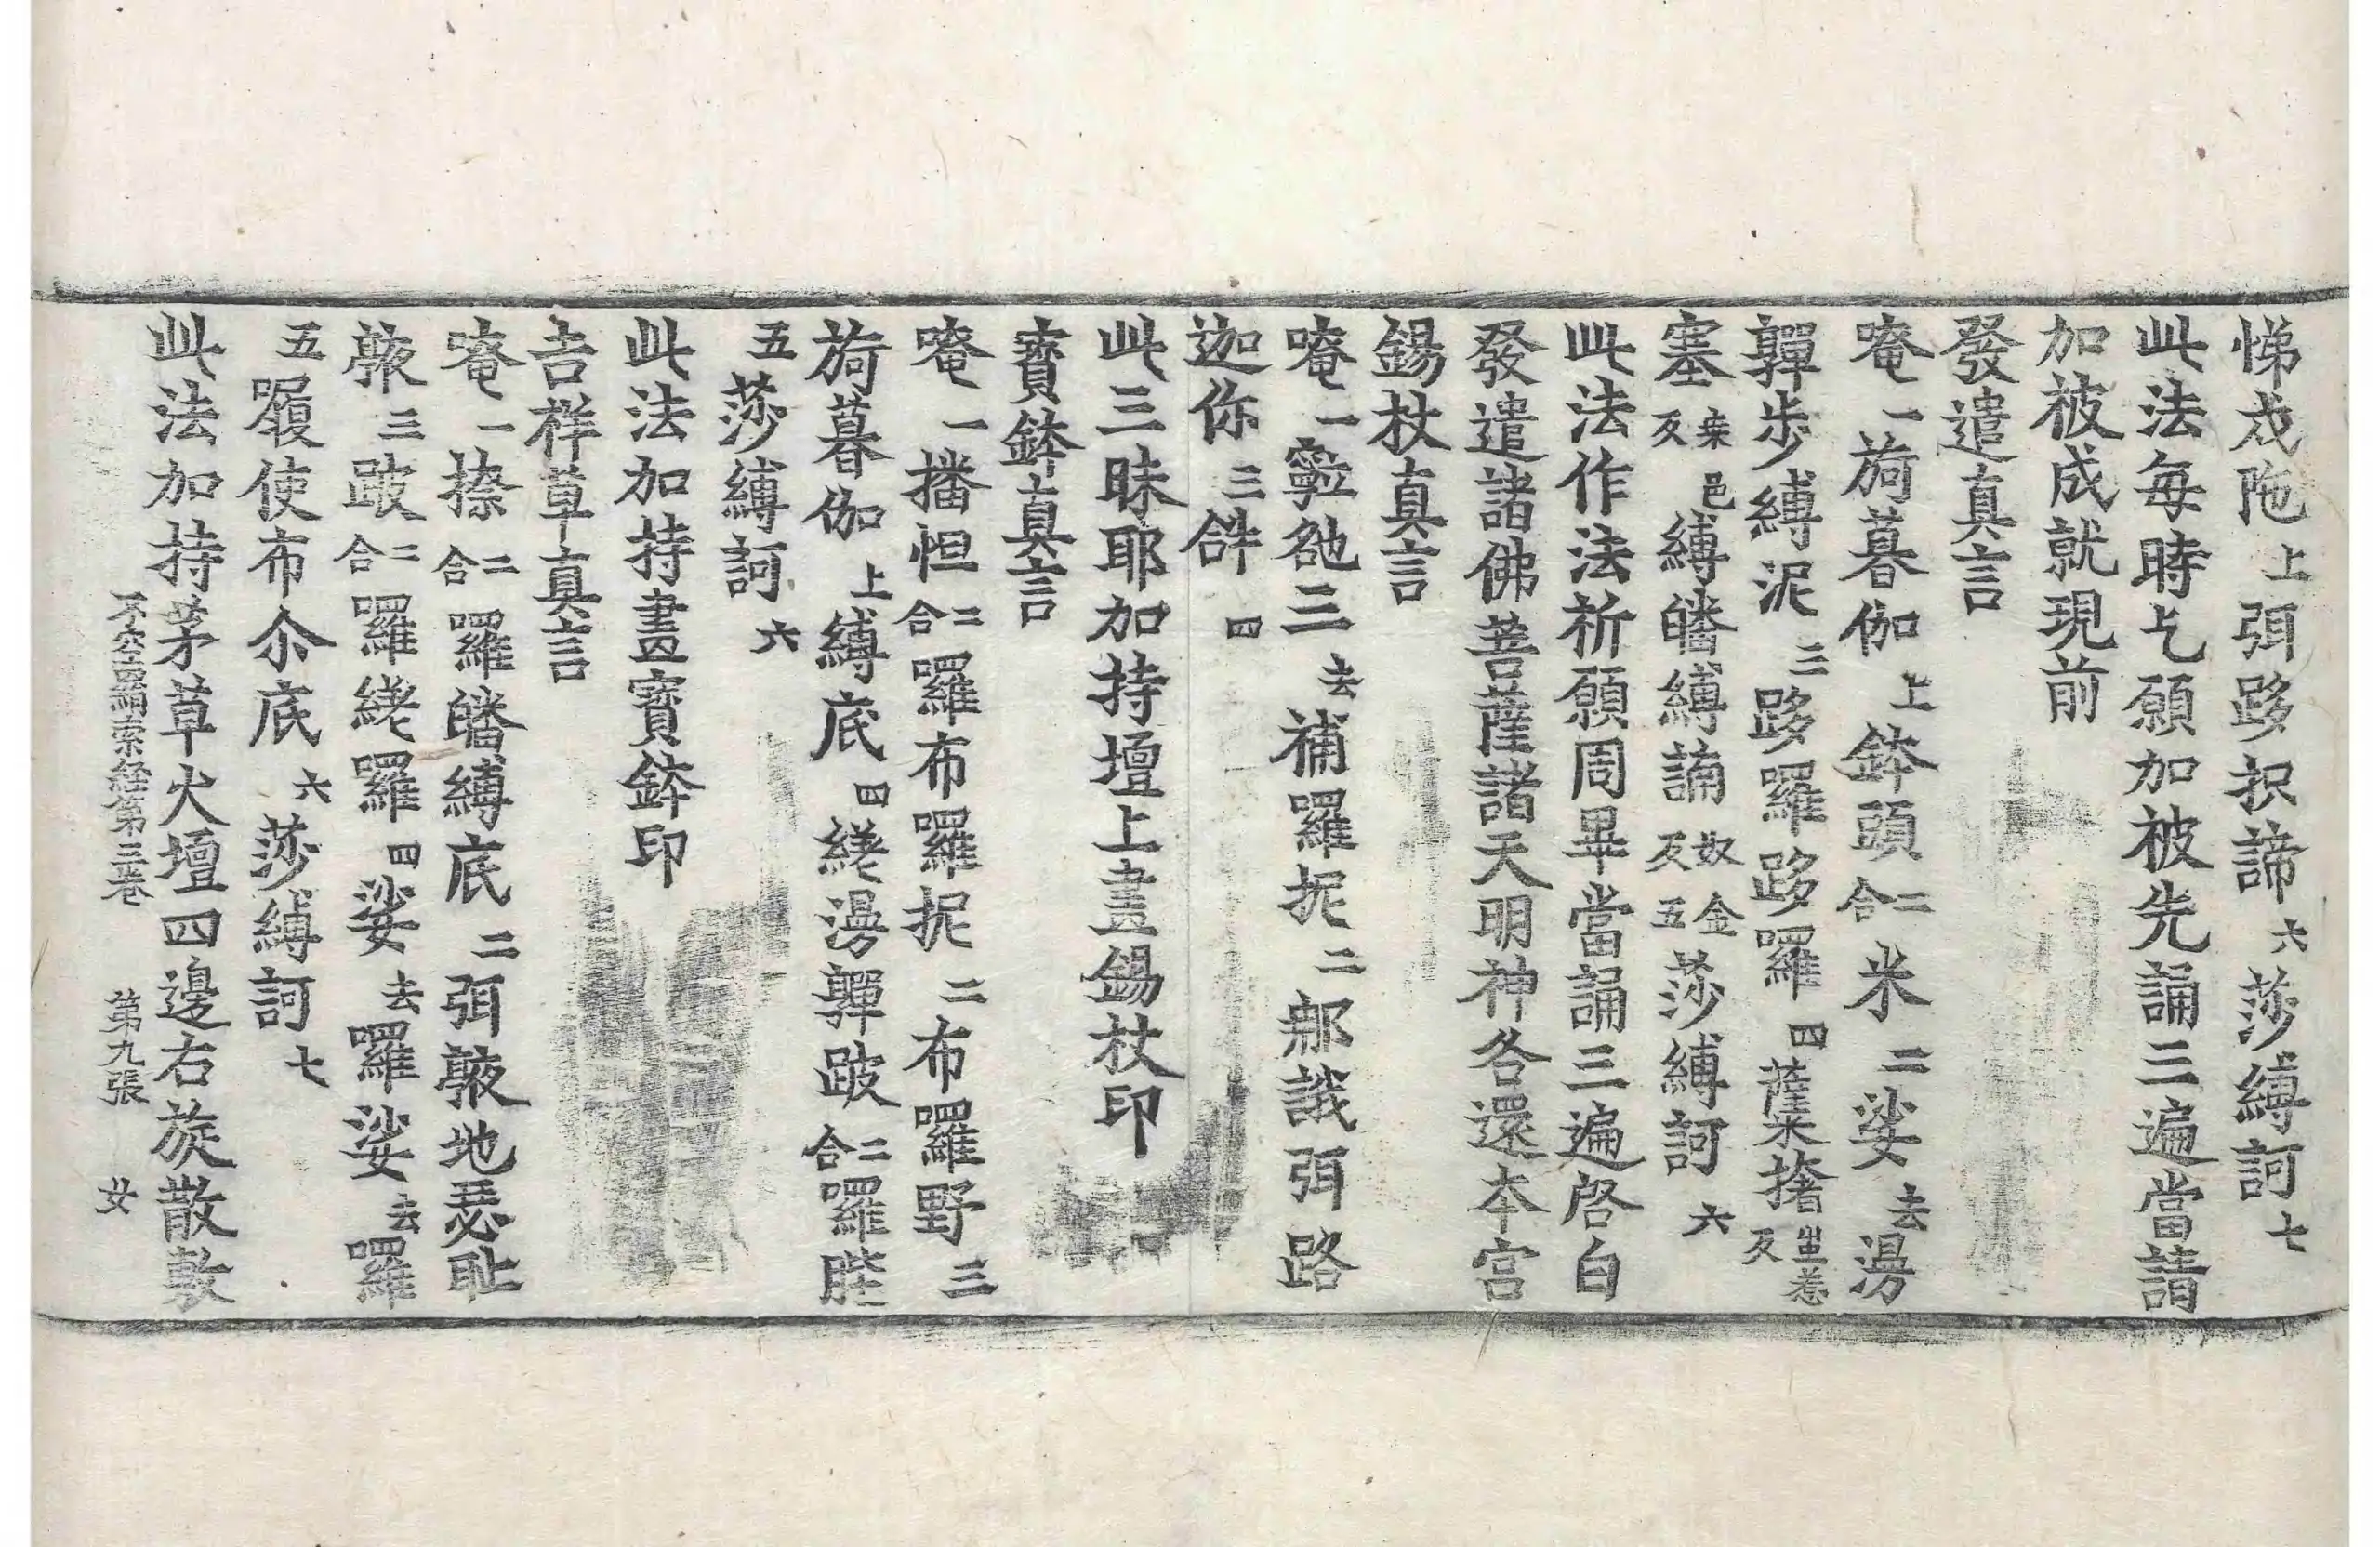 悌戍陁上弭跢抧諦六莎縛訶七
此法每時乞願加被先誦三遍當請
加被成就現前
發遣真言
唵一旖暮伽上鉢頭二合米二娑去湯
嚲步縛泥三跢羅跢囉四薩栥撦㘴惹反
塞桒邑反縛皤縛誦奴金反五莎縛訶六
此法作法祈願周畢當誦三遍啓白
發遣諸佛菩薩諸天明神各還本宮
錫杖真言
唵一三去補囉抳二郍誐弭路
迦你三𤙖四
此三昧耶加持壇上畫錫杖印
寶鉢真言
唵一播怛二合囉布囉抳二布囉野三
旖暮伽上縛底四縒湯嚲跛二合囉
五莎縛訶六
此法加持畫寶鉢印
吉样草真言
唵一捺二合羅皤縛底二弭腋地瑟耻
腋三跛二合羅縒羅四娑去囉娑去囉
五履使布尒底六莎縛訶七
此法加持茅草火壇四邊右旋散敷
不空羂索経第三卷 第九張 女